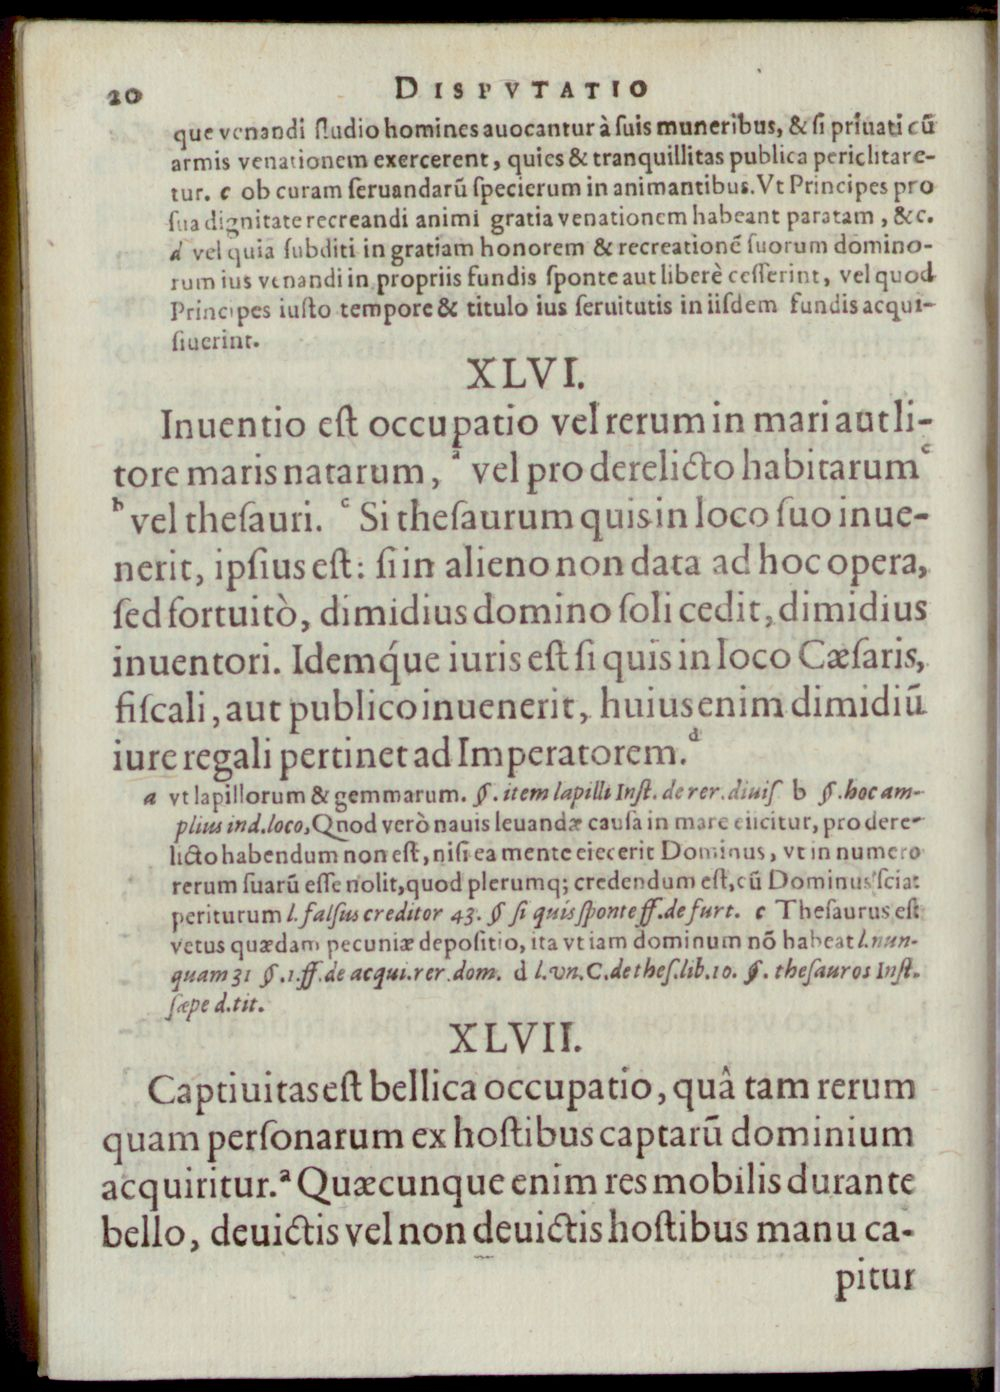 20 DISPVTATIO
que venandi ſtudio homines auocantur à ſuis muneribus, & ſi priuati cū
armis venationem exercerent, quies & tranquillitas publica periclitare-
tur. c ob curam ſeruandarū ſpecierum in animantibus. Vt Principes pro
ſua dignitate recreandi animi gratia venationem habeant paratam, &c.
d vel quia ſubditi in gratiam honorem & recreationē ſuorum domino-
rum ius venandi in propriis fundis ſponte aut liberè ceſſerint, vel quod
Principes iuſto tempore & titulo ius ſeruitutis in iiſdem fundis acqui-
ſiuerint.
XLVI.
Inuentio eſt occupatio vel rerum in mari aut li-
tore maris natarum, a vel pro derelicto habitarum c
b vel theſauri. c Si theſaurum quis in loco ſuo inue-
nerit, ipſius eſt: ſi in alieno non data ad hoc opera,
ſed fortuitò, dimidius domino ſoli cedit, dimidius
inuentori. Idemq́ue iuris eſt ſi quis in loco Cæſaris,
fiſcali, aut publico inuenerit, huius enim dimidiū
iure regali pertinet ad Imperatorem. d
a vt lapillorum & gemmarum. §. item lapilli Inſt. de rer. diuiſ b §. hoc am-
plius ind. loco, Qnod verò nauis leuandæ cauſa in mare eiicitur, pro dere-
licto habendum non eſt, niſi ea mente eiecerit Dominus, vt in numero
rerum ſuarū eſſe nolit, quod plerumq; credendum eſt, cū Dominus ſciat
periturum l. falſus creditor 43. § ſi quis ſponte ff. de furt. c Theſaurus eſt
vetus quædam pecuniæ depoſitio, ita vt iam dominum nō habeat l. nun-
quam 31 §. 1. ff. de acqui. rer. dom. d l. vn. C. de theſ. lib. 10. §. theſauros Inſt.
ſæpe d. tit.
XLVII.
Captiuitas eſt bellica occupatio, quâ tam rerum
quam perſonarum ex hoſtibus captarū dominium
acquiritur. a Quæcunque enim res mobilis durante
bello, deuictis vel non deuictis hoſtibus manu ca-
pitur